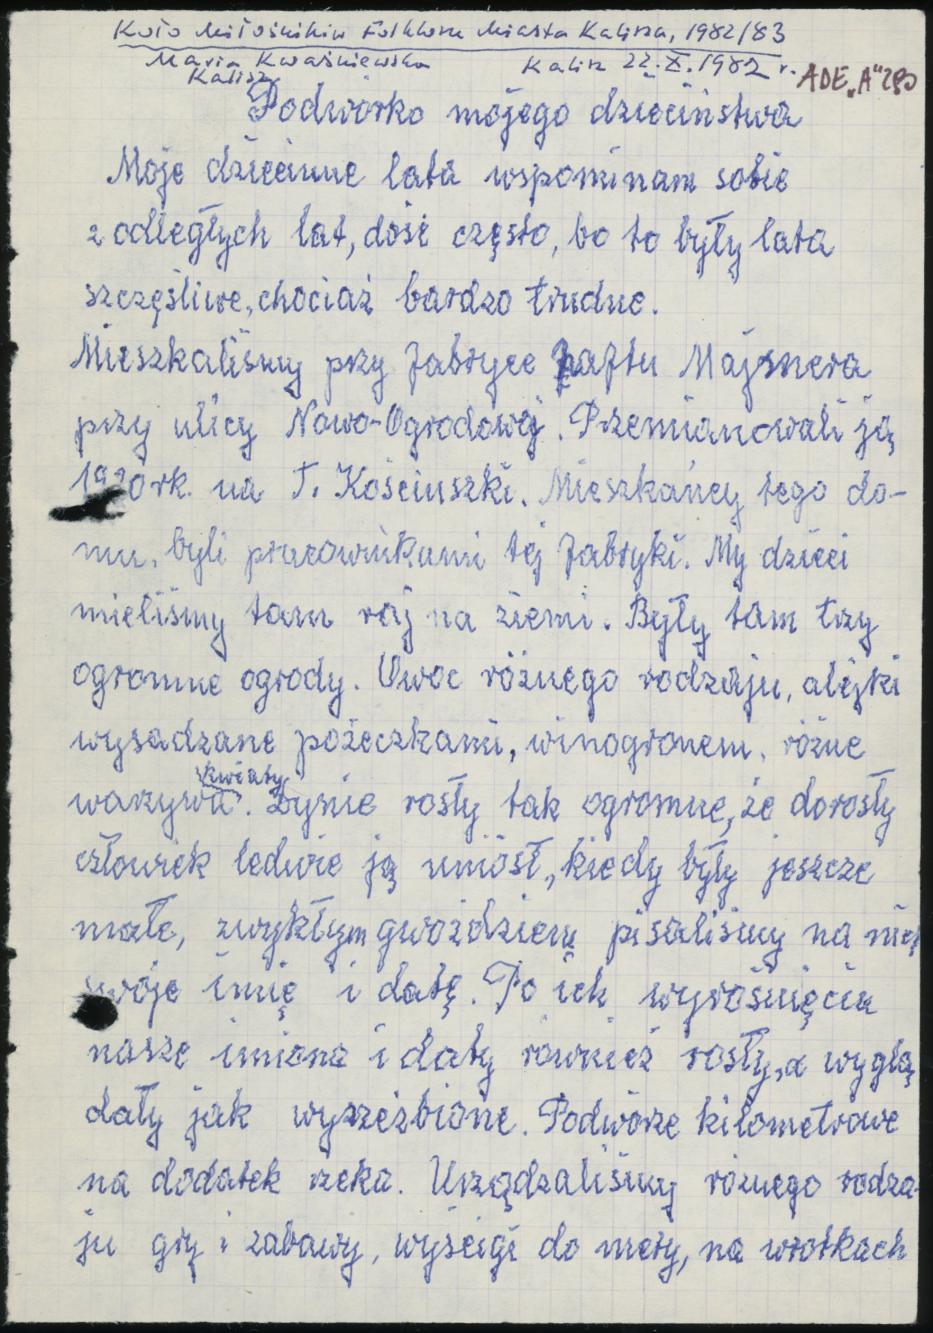 Koło Miłośników Folkloru Miasta Kalisza, 1982/83
Maria Kwaśniewska
Kalisz
Kalisz 22.X.1982 r.
ADE „A" 280
Podwórko mojego dzieciństwa
Moje dziecinne lata wspominam sobie
z odległych lat, dość często, bo to były lata
szczęśliwe, chociaż bardzo trudne.
Mieszkaliśmy przy fabryce haftu Majznera
przy ulicy Nowo-Ogrodowej. Przemianowali ją
rk. na T. Kościuszki. Mieszkańcy tego do-
mu, byli pracownikami tej fabryki. My dzieci
mieliśmy tam raj na ziemi. Były tam trzy
ogromne ogrody. Owoc różnego rodzaju, alejki
wysadzane pożeczkami, winogronem, różne
warzywa. kwiaty Dynie rosły tak ogromne, że dorosły
człowiek ledwie ją uniósł, kiedy były jeszcze
małe, zwykłym gwoździem pisaliśmy na niej
swoje imię i datę. Po ich wyrośnięciu
nasze imiona i daty również rosły, a wyglą
dały jak wyrzeźbione. Podwórze kilometrowe
na dodatek rzeka. Urządzaliśmy różnego rodza-
ju gry i zabawy, wyścigi do mety, na wrotkach